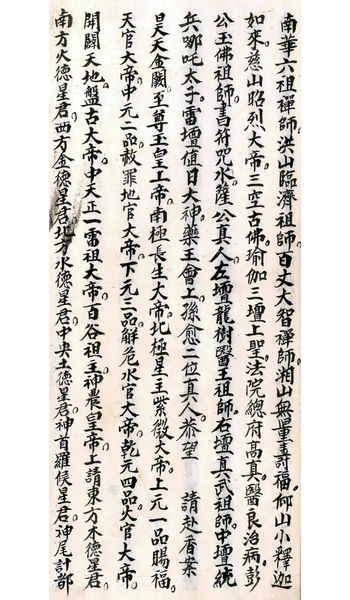 南華六祖禪師洪山臨濟祖師百丈大智禪師湘山無量壽福仰山小釋迦
如來慈山昭烈大帝三空古佛瑜伽三壇上聖法院總府高真醫良治病彭
公玉佛祖師書符咒水薩公真人左壇龍樹醫王祖師右壇真武祖師中壇統
兵哪吒太子雷壇值日大神藥王會上孫愈二位真人恭望 請赴香案
昊天金闕至尊玉皇上帝南極長生大帝北極星主紫微大帝上元一品賜福
天官大帝中元二品赦罪地官大帝下元三品解危水官大帝乾元四品火官大帝
開闢天地盤古大帝中天正一雷祖大帝百谷祖主神農皇帝上請東方木德星君
南方火德星君西方金德星君北方水德星君中央土德星君神首羅侯星君神尾計都